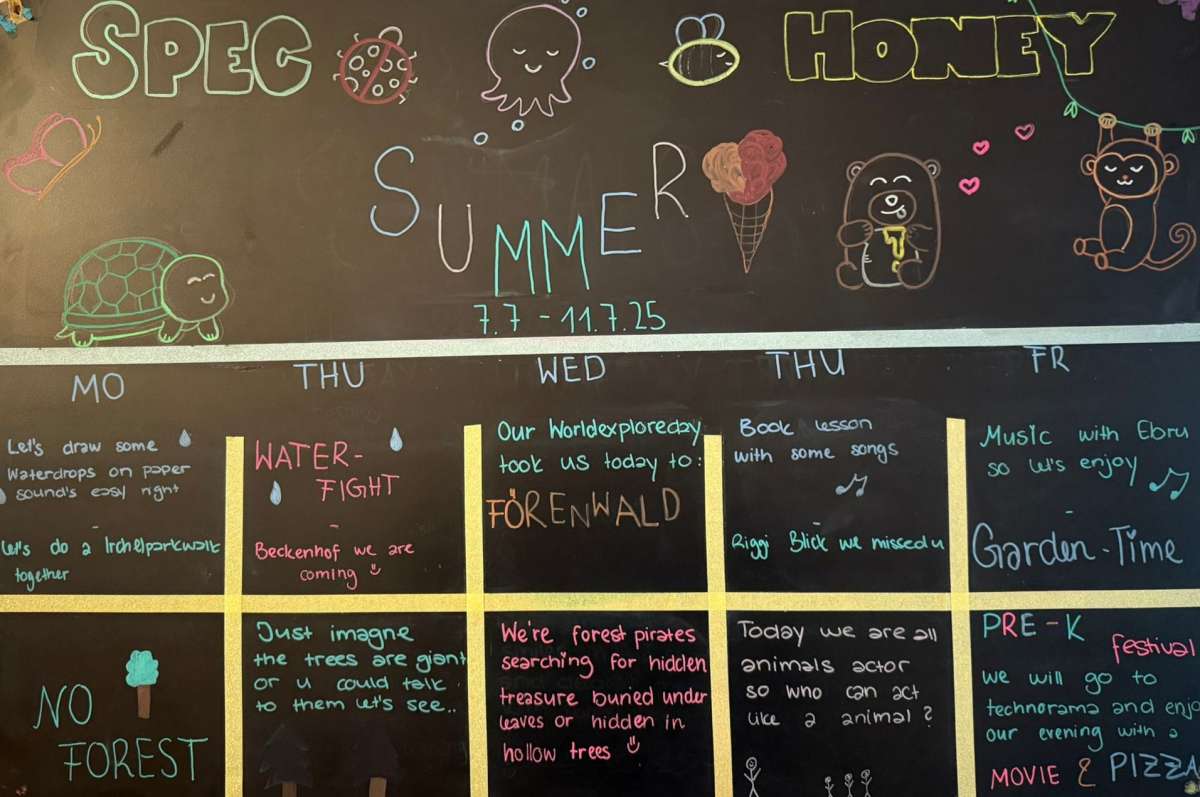 SPEC
HONEY
SUMMER
7.7 - 11.7.25
MO
THU
WED
THU
FR
Let's draw some
Waterdrops on paper
sound's easy right
-
Let's do a Irchelparkwalk
together
WATER-
FIGHT
-
Beckenhof we are
coming
Our Worldexploreday
took us today to:
FÖRENWALD
Book lesson
with some songs
-
Riggi Blick we missed u
Music with Ebru
so let's enjoy
-
Garden-Time
NO
FOREST
Just imagne
the trees are giant
or u could talk
to them let's see..
We're forest pirates
searching for hidden
treasure buried under
leaves or hidden in
hollow trees
Today we are all
animals actor
so who can act
like a animal?
PRE-K
festival
we will go to
technorama and enjo
our evening with a
MOVIE & PIZZA